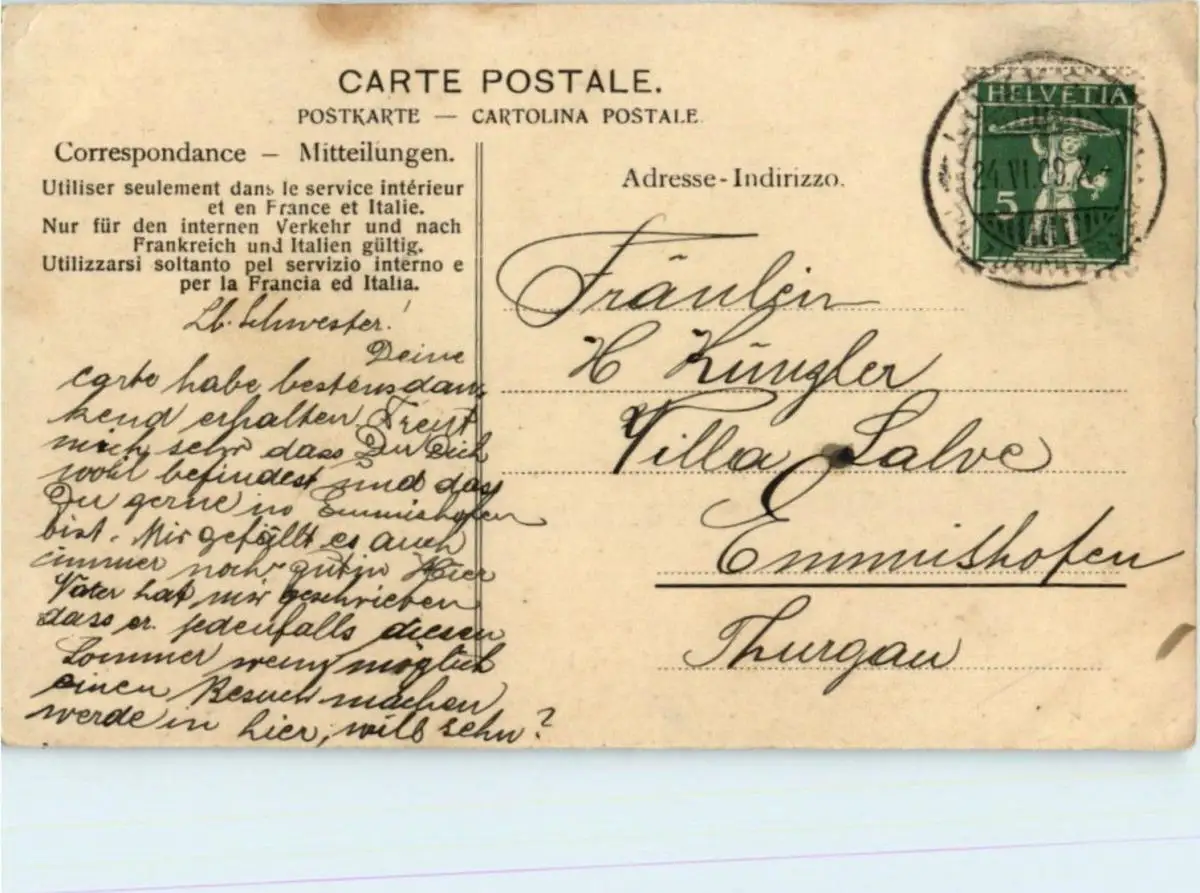 CARTE POSTALE.
POSTKARTE — CARTOLINA POSTALE
Correspondance — Mitteilungen.
Utiliser seulement dans le service intérieur
et en France et Italie.
Nur für den internen Verkehr und nach
Frankreich und Italien gültig.
Utilizzarsi soltanto pel servizio interno e
per la Francia ed Italia.
Lb. Schwester!
Deine
carte habe bestens dan
kend erhalten. Freut
mich sehr dass Du Dich
wohl befindest und dass
Du gerne in Emmishofen
bist. Mir gefällt es auch
immer noch gut in Hier
Vater hat mir geschrieben
dass er jedenfalls diesen
Sommer wenn möglich
einen Besuch machen
werde in hier, will sehn?
Adresse-Indirizzo.
Fräulein
H Küngler
Villa Salve
Emmishofen
Thurgau
HELVETIA
5
24.VI.09.X